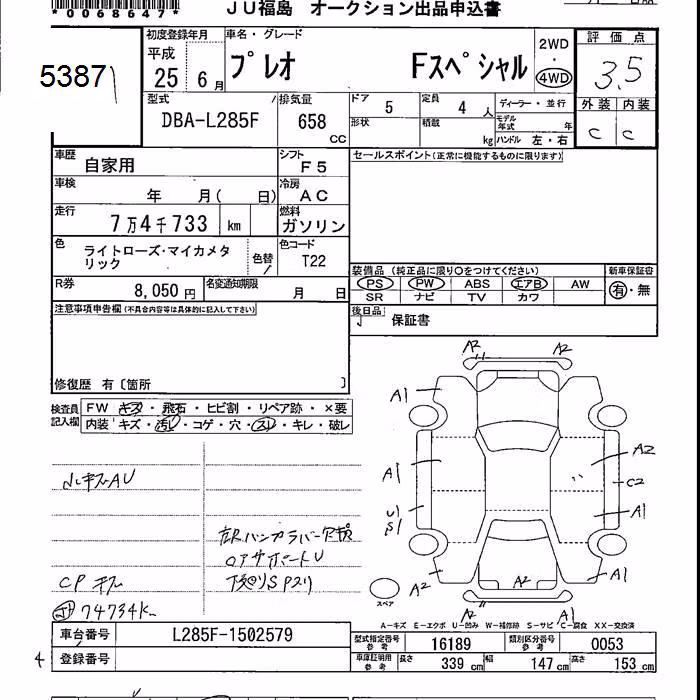 *0068647*
JU福島 オークション出品申込書
5387
初度登録年月 車名・グレード 2WD 評価点
平成 25 6月 プレオ Fスペシャル ・ 4WD 3.5
型式 DBA-L285F 排気量 658 CC
ドア 5 定員 4 人 ディーラー・並行
形状 積載 kg モデル年式 年 ハンドル 左・右
外装 内装
C C
車歴 自家用 シフト F5
セールスポイント(正常に機能するものに限ります)
車検 年 月( 日) 冷房 AC
走行 7万4千733 km 燃料 ガソリン
色 ライトローズ・マイカメタリック 色替 色コード T22
R券 8,050円 名変通知期限 月 日
装備品 (純正品に限り○をつけてください) 新車保証書
PS PW ABS エアB AW 有・無
SR ナビ TV カワ
注意事項申告欄(不具合内容等は具体的に記入して下さい)
後日品 保証書
修復歴 有〔箇所 〕
検査員記入欄
FW キズ・飛石・ヒビ割・リペア跡・×要
内装 キズ・汚レ・コゲ・穴・スレ・キレ・破レ
A2 A2
A1
A1 A2
C2
U1 A1
S1
A2 A2 A1
A2 A1
小キズAU
ロアサポートU
下廻りSアリ
CPキズ
74734K
スペア
A-キズ E-エクボ U-凹み W-補修跡 S-サビ C-腐食 XX-交換済
車台番号 L285F-1502579
登録番号
4
型式指定番号 参考 16189 類別区分番号 参考 0053
車庫証明用 参考 長さ 339 cm 幅 147 cm 高さ 153 cm